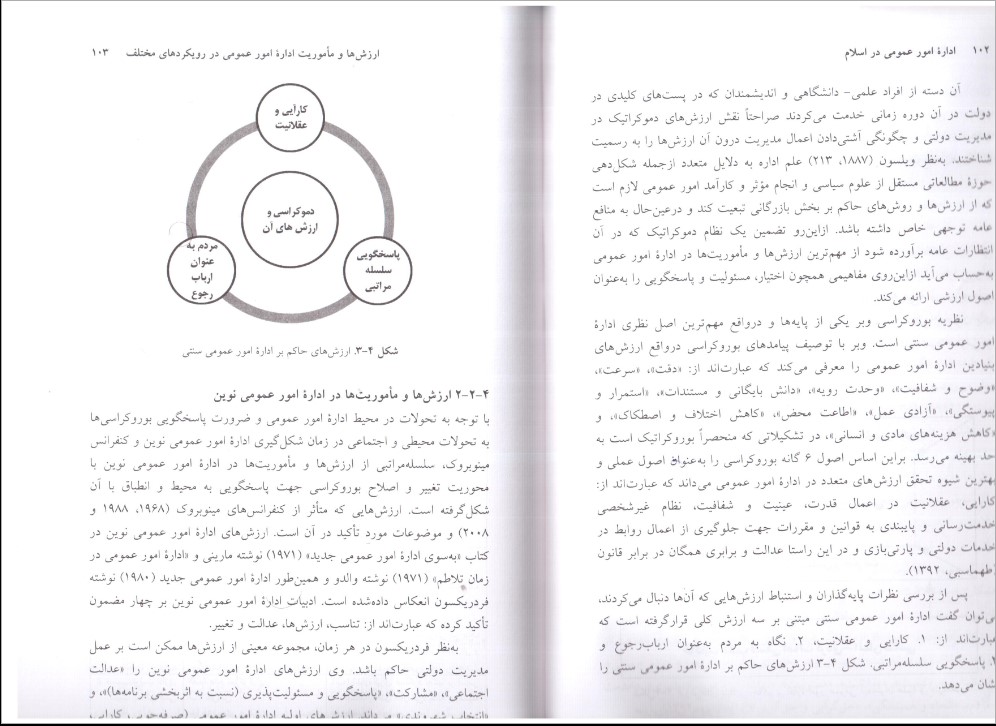 ۱۰۲ ادارهٔ امور عمومی در اسلام
آن دسته از افراد علمی- دانشگاهی و اندیشمندان که در پست‌های کلیدی در
دولت در آن دوره زمانی خدمت می‌کردند صراحتاً نقش ارزش‌های دموکراتیک در
مدیریت دولتی و چگونگی آشتی‌دادن اعمال مدیریت درون آن ارزش‌ها را به رسمیت
شناختند. به‌نظر ویلسون (۱۸۸۷، ۲۱۳) علم اداره به دلایل متعدد ازجمله شکل‌دهی
حوزهٔ مطالعاتی مستقل از علوم سیاسی و انجام مؤثر و کارآمد امور عمومی لازم است
که از ارزش‌ها و روش‌های حاکم بر بخش بازرگانی تبعیت کند و درعین‌حال به منافع
عامه توجهی خاص داشته باشد. ازاین‌رو تضمین یک نظام دموکراتیک که در آن
انتظارات عامه برآورده شود از مهم‌ترین ارزش‌ها و مأموریت‌ها در ادارهٔ امور عمومی
به‌حساب می‌آید ازاین‌روی مفاهیمی همچون اختیار، مسئولیت و پاسخگویی را به‌عنوان
اصول ارزشی ارائه می‌کند.
نظریه بوروکراسی وبر یکی از پایه‌ها و درواقع مهم‌ترین اصل نظری ادارهٔ
امور عمومی سنتی است. وبر با توصیف پیامدهای بوروکراسی درواقع ارزش‌های
بنیادین ادارهٔ امور عمومی را معرفی می‌کند که عبارت‌اند از: «دقت»، «سرعت»،
«وضوح و شفافیت»، «وحدت رویه»، «دانش بایگانی و مستندات»، «استمرار و
پیوستگی»، «آزادی عمل»، «اطاعت محض»، «کاهش اختلاف و اصطکاک»، و
«کاهش هزینه‌های مادی و انسانی»، در تشکیلاتی که منحصراً بوروکراتیک است به
حد بهینه می‌رسد. براین اساس اصول ۶ گانه بوروکراسی را به‌عنوان اصول عملی و
بهترین شیوه تحقق ارزش‌های متعدد در ادارهٔ امور عمومی می‌داند که عبارت‌اند از:
کارایی، عقلانیت در اعمال قدرت، عینیت و شفافیت، نظام غیرشخصی
خدمت‌رسانی و پایبندی به قوانین و مقررات جهت جلوگیری از اعمال روابط در
خدمات دولتی و پارتی‌بازی و در این راستا عدالت و برابری همگان در برابر قانون
(طهماسبی، ۱۳۹۲).
پس از بررسی نظرات پایه‌گذاران و استنباط ارزش‌هایی که آن‌ها دنبال می‌کردند،
می‌توان گفت ادارهٔ امور عمومی سنتی مبتنی بر سه ارزش کلی قرارگرفته است که
عبارت‌اند از: ۱. کارایی و عقلانیت، ۲. نگاه به مردم به‌عنوان ارباب‌رجوع و
۳. پاسخگویی سلسله‌مراتبی. شکل ۴-۳ ارزش‌های حاکم بر ادارهٔ امور عمومی سنتی را
نشان می‌دهد.
ارزش‌ها و مأموریت ادارهٔ امور عمومی در رویکردهای مختلف ۱۰۳
کارآیی و
عقلانیت
دموکراسی و
ارزش های آن
پاسخگویی
سلسله
مراتبی
مردم به
عنوان
ارباب
رجوع
شکل ۴-۳. ارزش‌های حاکم بر ادارهٔ امور عمومی سنتی
۴-۲-۲ ارزش‌ها و مأموریت‌ها در ادارهٔ امور عمومی نوین
با توجه به تحولات در محیط ادارهٔ امور عمومی و ضرورت پاسخگویی بوروکراسی‌ها
به تحولات محیطی و اجتماعی در زمان شکل‌گیری ادارهٔ امور عمومی نوین و کنفرانس
مینوبروک، سلسله‌مراتبی از ارزش‌ها و مأموریت‌ها در ادارهٔ امور عمومی نوین با
محوریت تغییر و اصلاح بوروکراسی جهت پاسخگویی به محیط و انطباق با آن
شکل‌گرفته است. ارزش‌هایی که متأثر از کنفرانس‌های مینوبروک (۱۹۶۸، ۱۹۸۸ و
۲۰۰۸) و موضوعات مورد تأکید در آن است. ارزش‌های ادارهٔ امور عمومی نوین در
کتاب «به‌سوی ادارهٔ امور عمومی جدید» (۱۹۷۱) نوشته مارینی و «ادارهٔ امور عمومی در
زمان تلاطم» (۱۹۷۱) نوشته والدو و همین‌طور ادارهٔ امور عمومی جدید (۱۹۸۰) نوشته
فردریکسون انعکاس داده‌شده است. ادبیات ادارهٔ امور عمومی نوین بر چهار مضمون
تأکید کرده که عبارت‌اند از: تناسب، ارزش‌ها، عدالت و تغییر.
به‌نظر فردریکسون در هر زمان، مجموعه معینی از ارزش‌ها ممکن است بر عمل
مدیریت دولتی حاکم باشد. وی ارزش‌های ادارهٔ امور عمومی نوین را «عدالت
اجتماعی»، «مشارکت»، «پاسخگویی و مسئولیت‌پذیری (نسبت به اثربخشی برنامه‌ها)»، و
«انتخاب شهروندی» می‌داند. ارزش‌های اولیه ادارهٔ امور عمومی (صرفه‌جویی، کارایی،